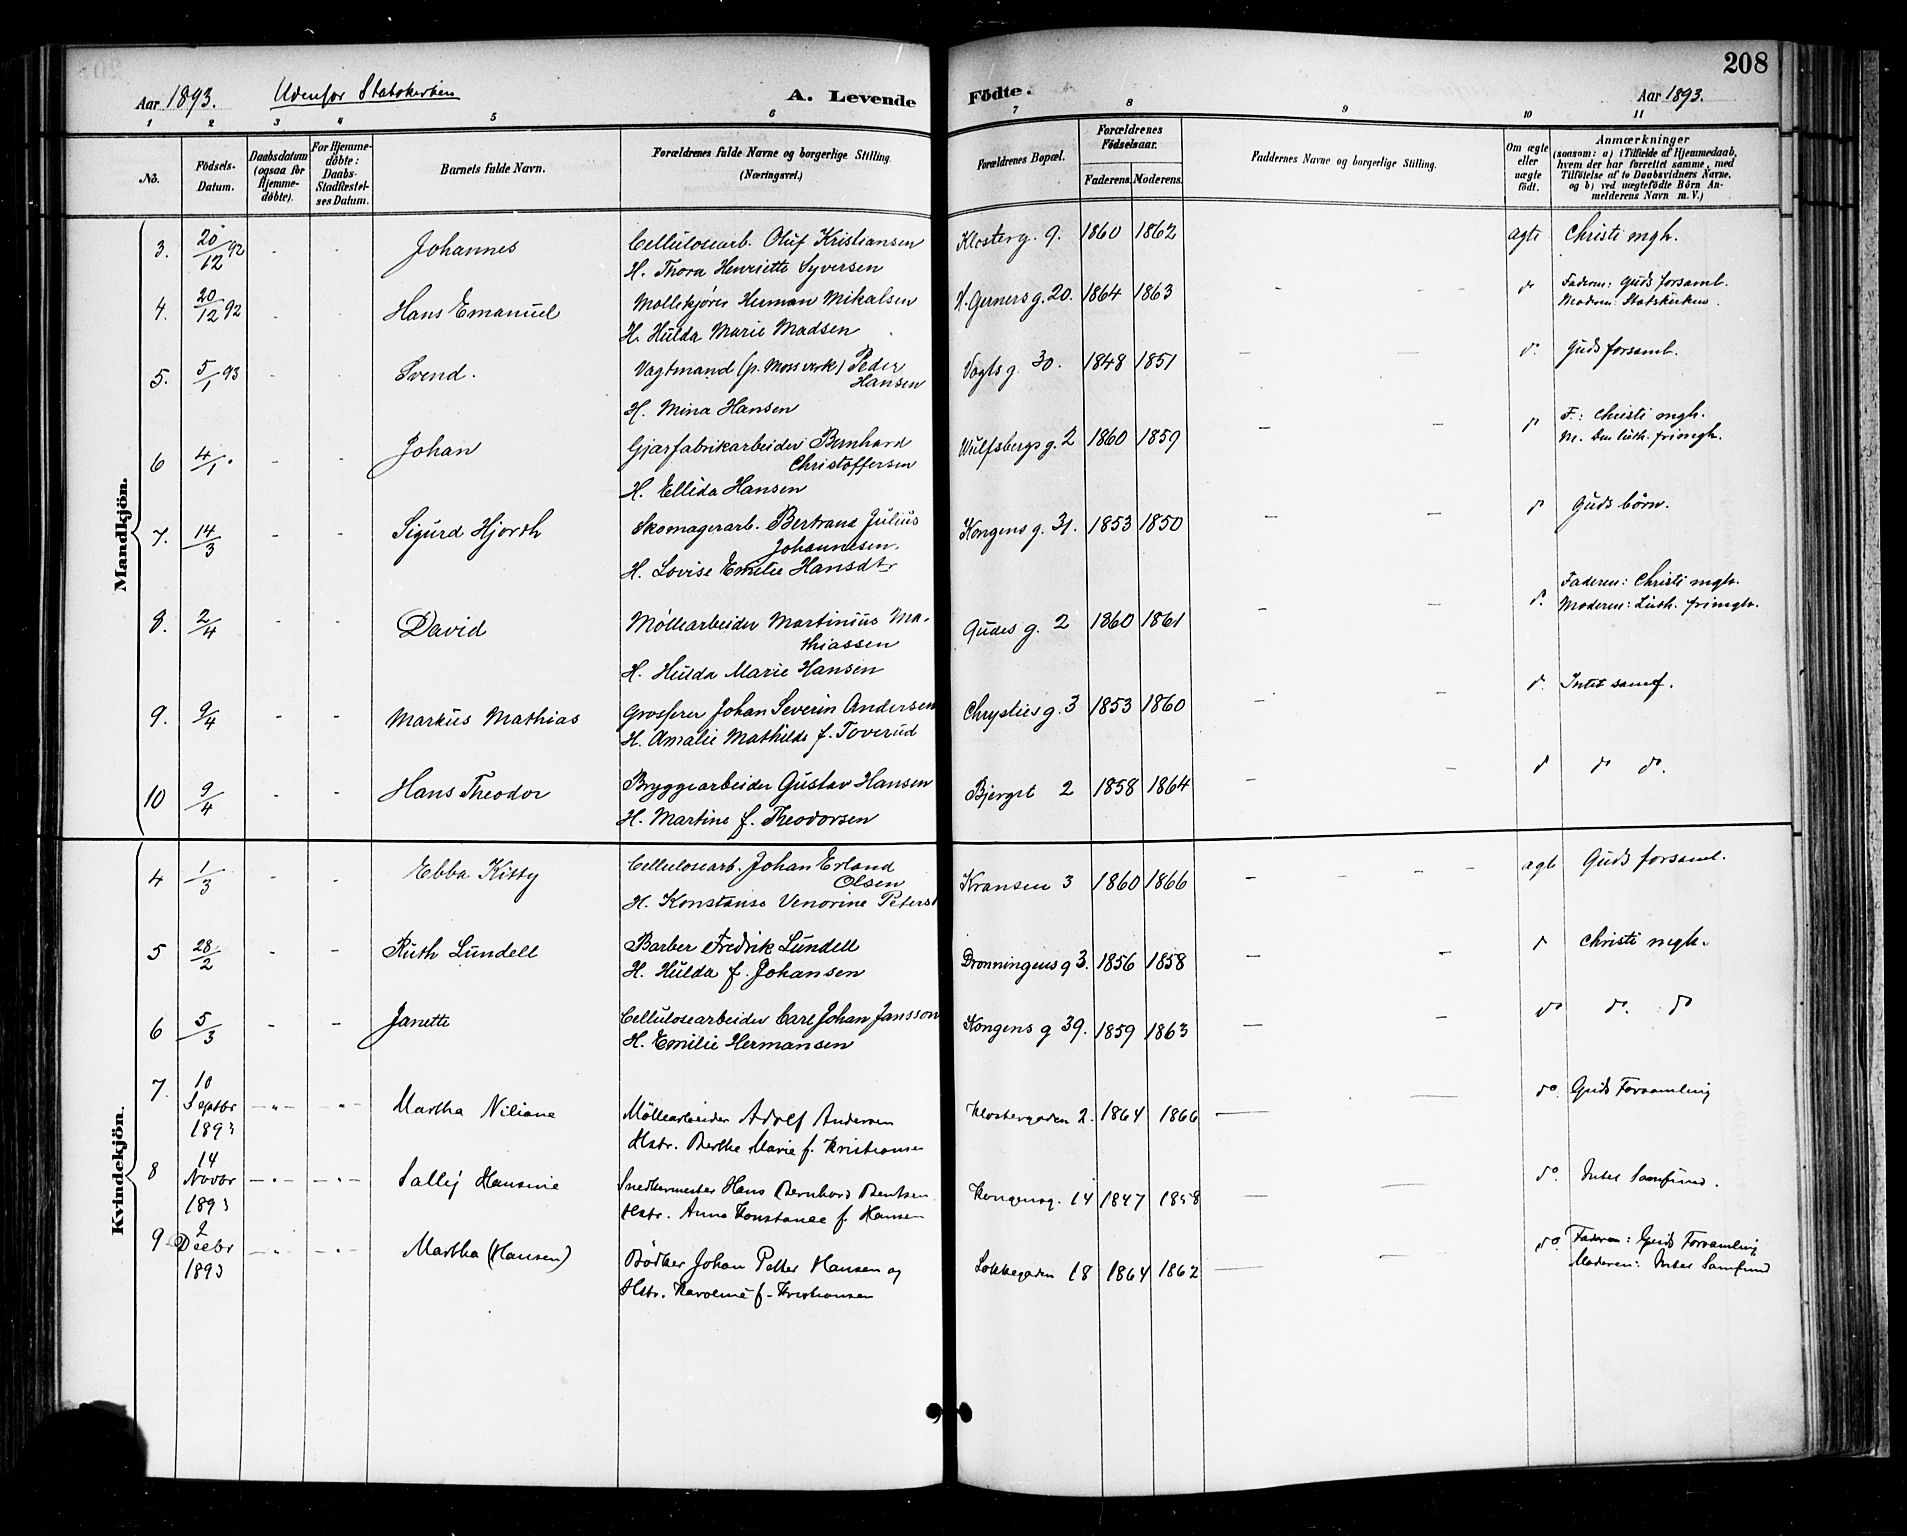 208
Aar 1893. Udenfor Statskirken A. Levende Födte. Aar 1893.
1 2 3 4 5 6 7 8 9 10 11
No. Födsels-Datum. Daabsdatum (ogsaa for Hjemme-døbte). For Hjemme-døbte: Daabs-Stadfæstel-ses Datum. Barnets fulde Navn. Forældrenes fulde Navne og borgerlige Stilling. (Næringsvei.) Forældrenes Bopæl. Forældrenes Födselsaar. Faderens. Moderens. Faddernes Navne og borgerlige Stilling. Om ægte eller uægte födt. Anmærkninger (saasom: a) i Tilfælde af Hjemmedaab, hvem der har forrettet samme, med Tilföielse af to Daabsvidners Navne, og b) ved uægtefödte Börn An-melderens Navn m. V.)
Mandkjön.
3. 20/12 92 - - Johannes Cellulosearb. Oluf Kristiansen Klosterg. 9. 1860 1862 ægte Christi mgh.
H. Thora Henriette Syversen
4. 20/12 92 - - Hans Emanuel Møllekjører Herman Mikalsen H. Gerners g. 20. 1864 1863 - - do Faderen: Guds forsaml.
H. Hulda Marie Madsen Moderen: Statskirken.
5. 5/1 93 - - Svend. Vagtmand (p. Moss verk) Peder Hansen Vogts g. 30. 1848 1851 - - do. Guds forsaml.
H. Mina Hansen
6 4/1 - - Johan Gjærfabrikarbeider Bernhard Christoffersen Wulfsbergs g. 2 1860 1859 - - do F.: Christi mgh.
H. Ellida Hansen M. Den luth. frimgh.
7. 14/3 - - Sigurd Hjorth Skomagerarb. Bertrans Julius Johannesen. Kongens g. 31. 1853 1850 - - do Guds børn.
H. Lovise Emelie Hansdtr
8. 2/4 - - David Møllearbeider Martinius Mathiassen Gudes g. 2 1860 1861 - - do. Faderen: Christi mgh.
H. Hulda Marie Hansen Moderen: Luth. frimgh.
9. 9/4 - - Markus Mathias Grosserer Johan Severin Andersen Chrysties g. 3 1853 1860 - - do. Intet samf.
H. Amalie Mathilde f. Toverud
10 9/4 - - Hans Theodor Bryggearbeider Gustav Hansen Bjerget 2 1858 1864 - - do do do.
H. Martine f. Theodorsen
Kvindekjön.
4 1/3 - - Ebba Kitty Cellulosearb. Johan Erland Olsen Kransen 3 1860 1866 - - - - ægte Guds forsaml.
H. Konstanse Venorine Peters
5 28/2 - - Ruth Lundell Barber Fredrik Lundell Dronningens g 3. 1856 1858 - - do Christi mgh.
H. Hulda f. Johansen
6 5/3 - - Janette Cellulosearbeider Carl Johan Jansson Kongens g 39. 1859 1863 - - do do. do
H. Emilie Hermansen
7. 10 Septbr 1893 -"- -"- Martha Niliane Möllearbeider Adolf Andersen Klostergaden 2. 1864 1866 - - do. Guds Forsamling
Hstr. Berthe Marie f. Kristianse
8 14 Novbr 1893 -"- -"- Sallij Hansine Snedkermester Hans Bernhard Bentsen Kongensg. 14 1847 1858 - - do. Intet Samfund.
Hstr. Anna Konstance f. Hansen
9 2 Decbr 1893 -"- -"- Martha (Hansen) Bödker Johan Petter Hansen og 18 1864 1862 - - do. Faderen: Guds Forsamling
Hstr. Karoline f. Kristiansen Moderen: Intet Samfund